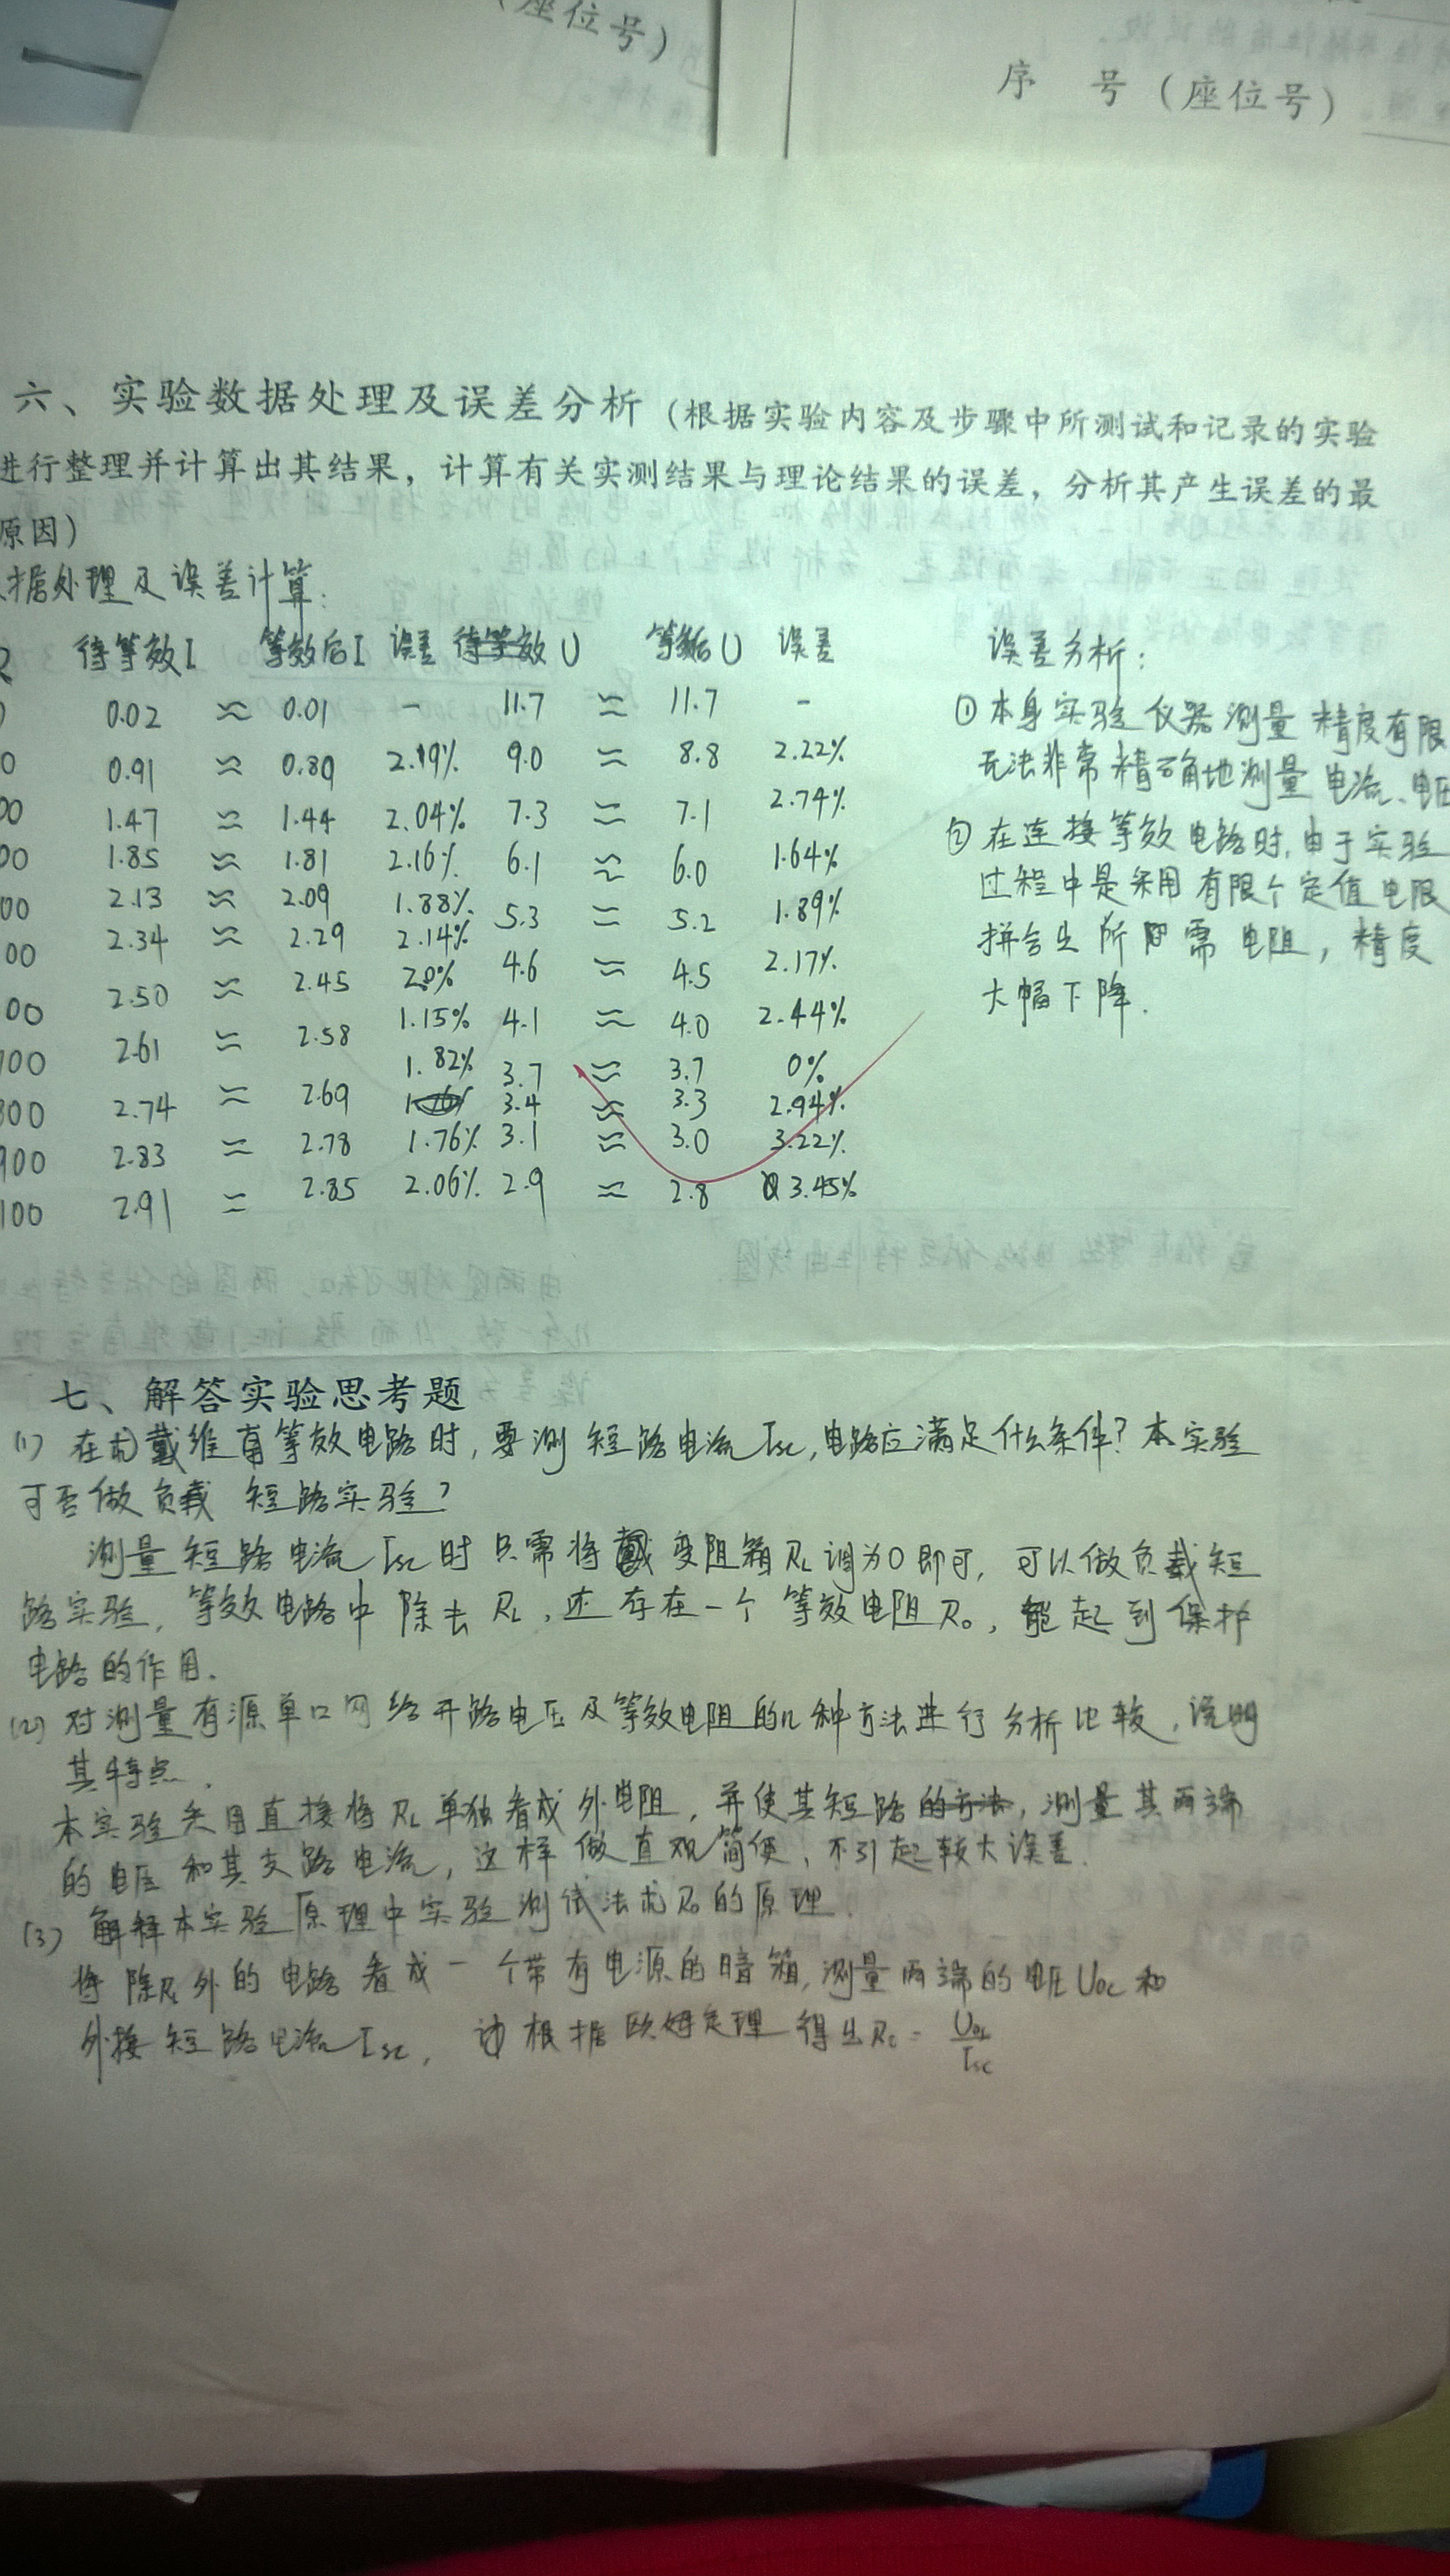 (座位号)
序 号(座位号)
六、实验数据处理及误差分析(根据实验内容及步骤中所测试和记录的实验
进行整理并计算出其结果，计算有关实测结果与理论结果的误差，分析其产生误差的最
原因)
据处理及误差计算:
待等效I 等效后I 误差 待等效U 等效后U 误差 误差分析:
0.02 ≈ 0.01 - 11.7 ≈ 11.7 -
0 0.91 ≈ 0.89 2.19% 9.0 ≈ 8.8 2.22%
00 1.47 ≈ 1.44 2.04% 7.3 ≈ 7.1 2.74%
00 1.85 ≈ 1.81 2.16% 6.1 ≈ 6.0 1.64%
00 2.13 ≈ 2.09 1.88% 5.3 ≈ 5.2 1.89%
00 2.34 ≈ 2.29 2.14% 4.6 ≈ 4.5 2.17%
00 2.50 ≈ 2.45 2.0% 4.1 ≈ 4.0 2.44%
700 2.61 ≈ 2.58 1.15% 3.7 ≈ 3.7 0%
800 2.74 ≈ 2.69 1.82% 3.4 ≈ 3.3 2.94%
900 2.83 ≈ 2.78 1.76% 3.1 ≈ 3.0 3.22%
100 2.91 ≈ 2.85 2.06% 2.9 ≈ 2.8 3.45%
①本身实验仪器测量精度有限
无法非常精确地测量电流、电压
②在连接等效电路时,由于实验
过程中是采用有限个定值电阻
拼合出所需电阻，精度
大幅下降.
七、解答实验思考题
(1) 在戴维南等效电路时,要测短路电流Isc,电路应满足什么条件?本实验
可否做负载短路实验?
测量短路电流Isc时只需将变阻箱RL调为0即可，可以做负载短
路实验，等效电路中除去RL,还存在一个等效电阻R0,能起到保护
电路的作用.
(2) 对测量有源单口网络开路电压及等效电阻的几种方法进行分析比较,说明
其特点.
本实验采用直接将RL单独看成外电阻，并使其短路的方法，测量其两端
的电压和其支路电流，这样做直观简便，不引起较大误差.
(3) 解释本实验原理中实验测试法求R0的原理.
将除RL外的电路看成一个带有电源的暗箱,测量两端的电压Uoc和
外接短路电流Isc, 根据欧姆定理得出R0=Uoc/Isc